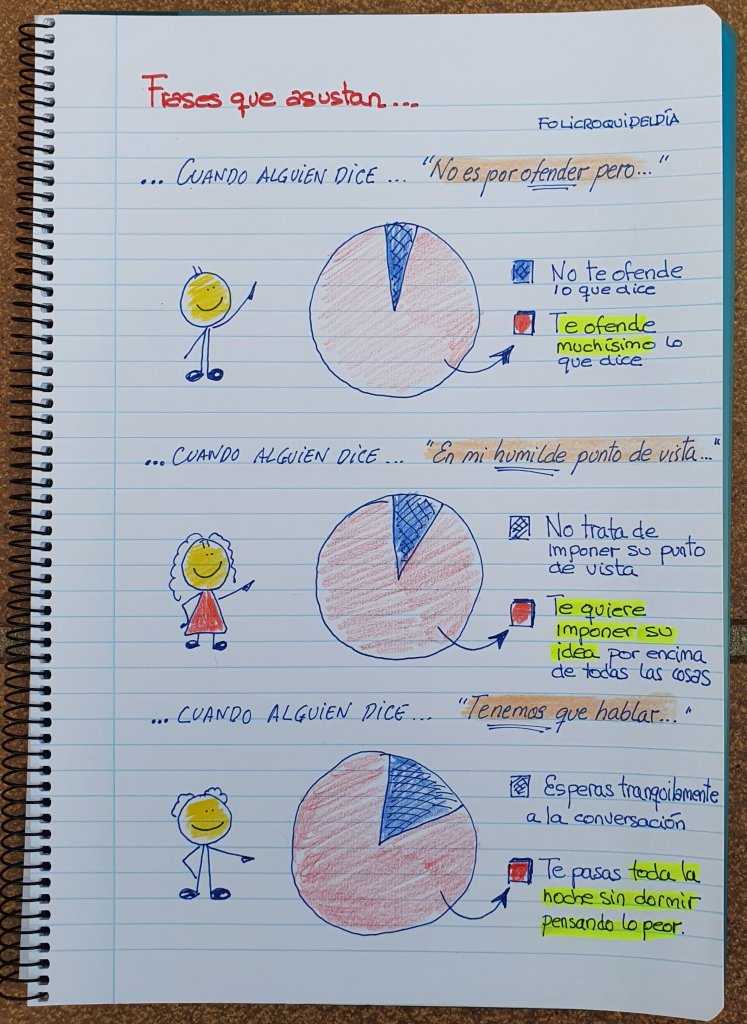 Frases que asustan...
FOLICROQUIDELDÍA
... CUANDO ALGUIEN DICE ... "No es por ofender pero..."
No te ofende
lo que dice
Te ofende
muchísimo lo
que dice
... CUANDO ALGUIEN DICE ... "En mi humilde punto de vista..."
No trata de
imponer su punto
de vista
Te quiere
imponer su
idea por encima
de todas las cosas
... CUANDO ALGUIEN DICE ... "Tenemos que hablar..."
Esperas tranquilamente
a la conversación
Te pasas toda la
noche sin dormir
pensando lo peor.